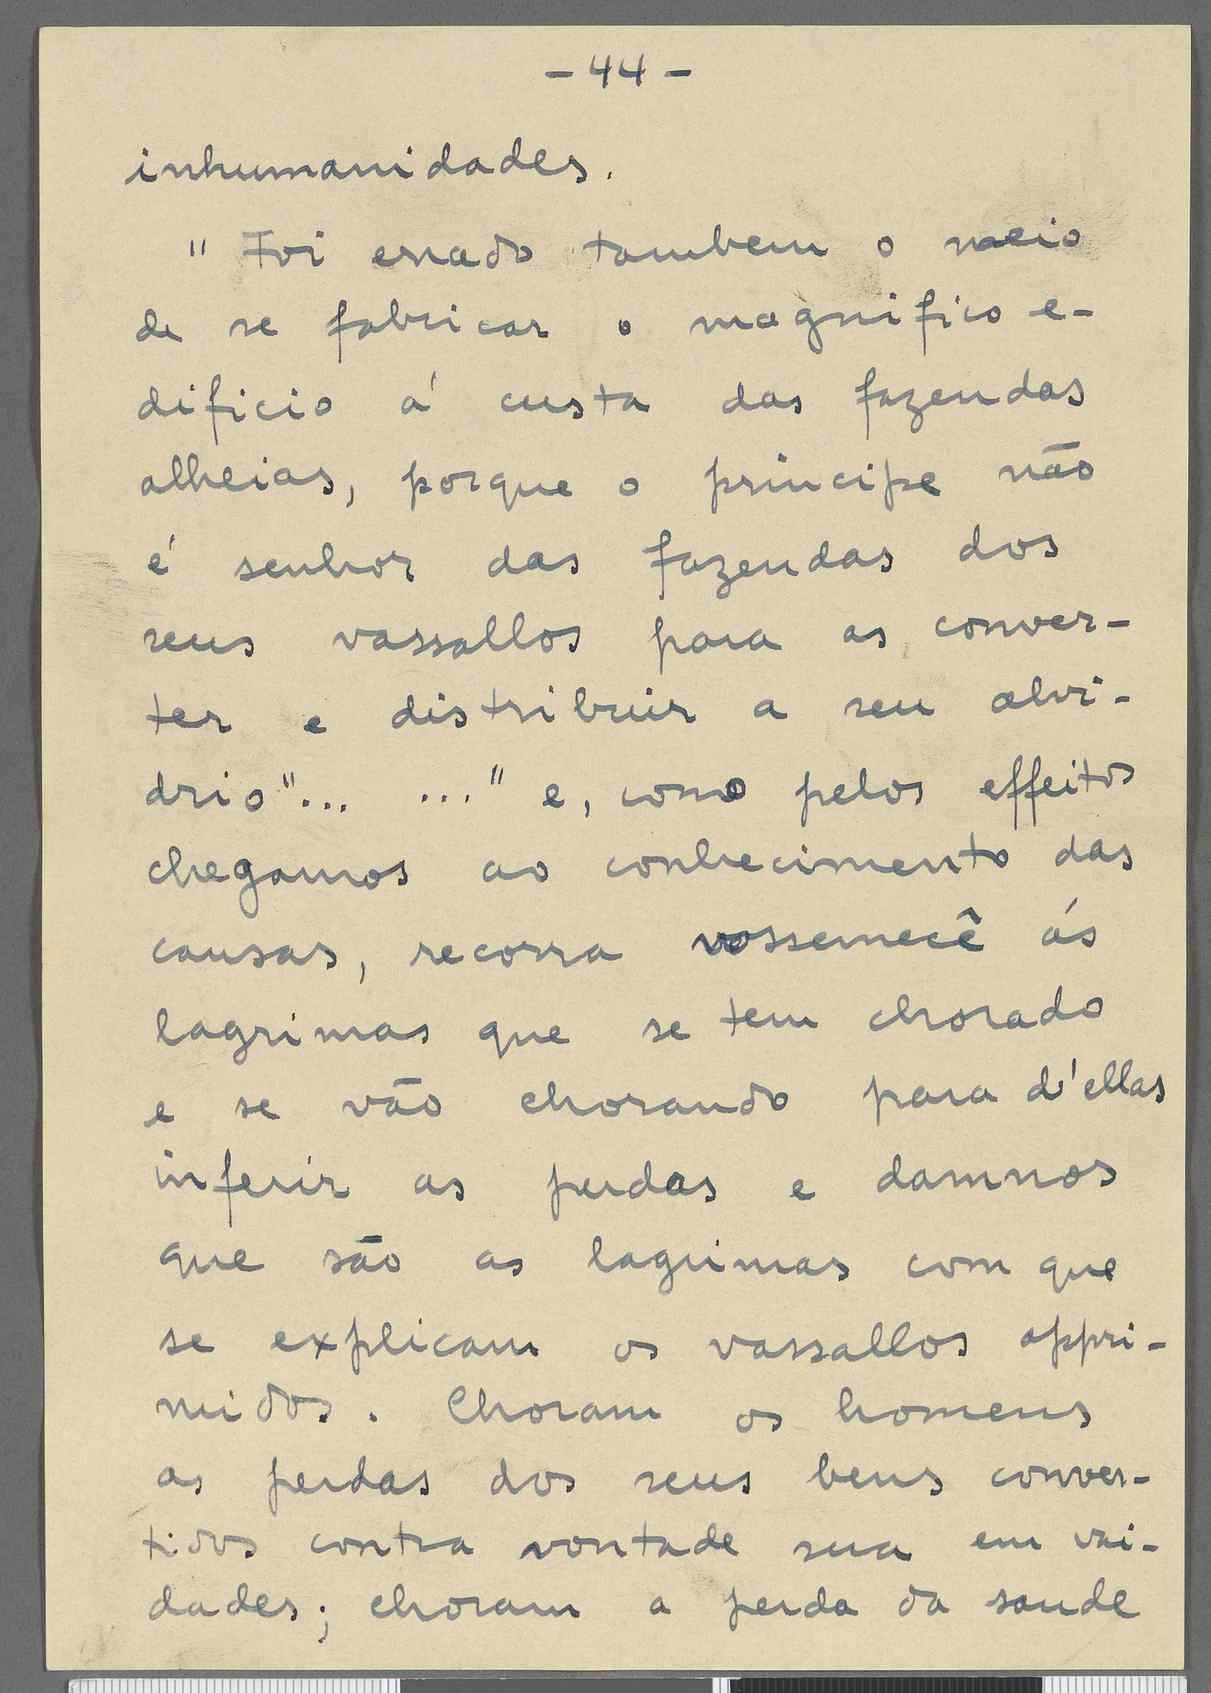 - 44 -
inhumanidades.
" Foi errado tambem o meio
de se fabricar o magnifico e-
dificio á custa das fazendas
alheias, porque o principe não
é senhor das fazendas dos
seus vassallos para as conver-
ter e distribuir a seu alvi-
drio"... ..." e, como pelos effeitos
chegamos ao conhecimento das
causas, recorra vossemecê ás
lagrimas que se tem chorado
e se vão chorando para d'ellas
inferir as perdas e damnos
que são as lagrimas com que
se explicam os vassallos oppri-
midos. Choram os homens
as perdas dos seus bens conver-
tidos contra vontade sua em vai-
dades; choram a perda da saude